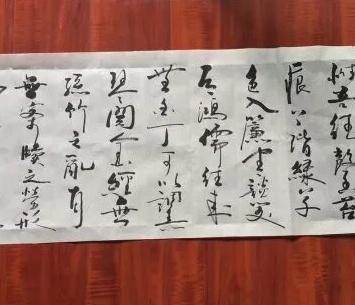 惟吾德馨苔
痕上階緑草
色入簾青談笑
有鴻儒往来
無白丁可以調素
琴閱金經無
絲竹之亂耳
無案牘之勞形